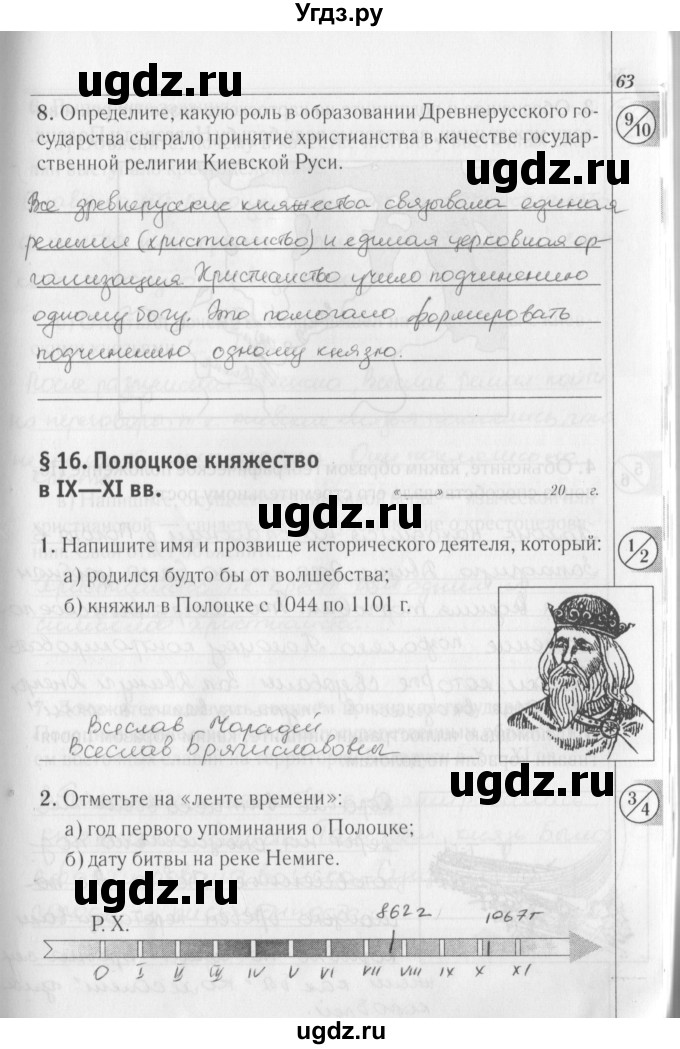 Угдз.ру
ugdz.ru
63
8. Определите, какую роль в образовании Древнерусского го-
сударства сыграло принятие христианства в качестве государ-
ственной религии Киевской Руси.
9/10
Все древнерусские княжества связывала единая
религия (христианство) и единая церковная ор-
ганизация. Христианство учило подчинению
одному богу. Это помогало формировать
подчинению одному князю.
ugdz.ru
ugdz.ru
§ 16. Полоцкое княжество
в IX—XI вв.
« » 20 г.
ugdz.ru
1. Напишите имя и прозвище исторического деятеля, который:
а) родился будто бы от волшебства;
б) княжил в Полоцке с 1044 по 1101 г.
1/2
ugdz.ru
ugdz.ru
Всеслав Чародей
Всеслав Брячиславовы
2. Отметьте на «ленте времени»:
а) год первого упоминания о Полоцке;
б) дату битвы на реке Немиге.
3/4
ugdz.ru
ugdz.ru
Р. Х.
862г
1067г
O I II III IV V VI VII VIII IX X XI
ugdz.ru
ugdz.ru